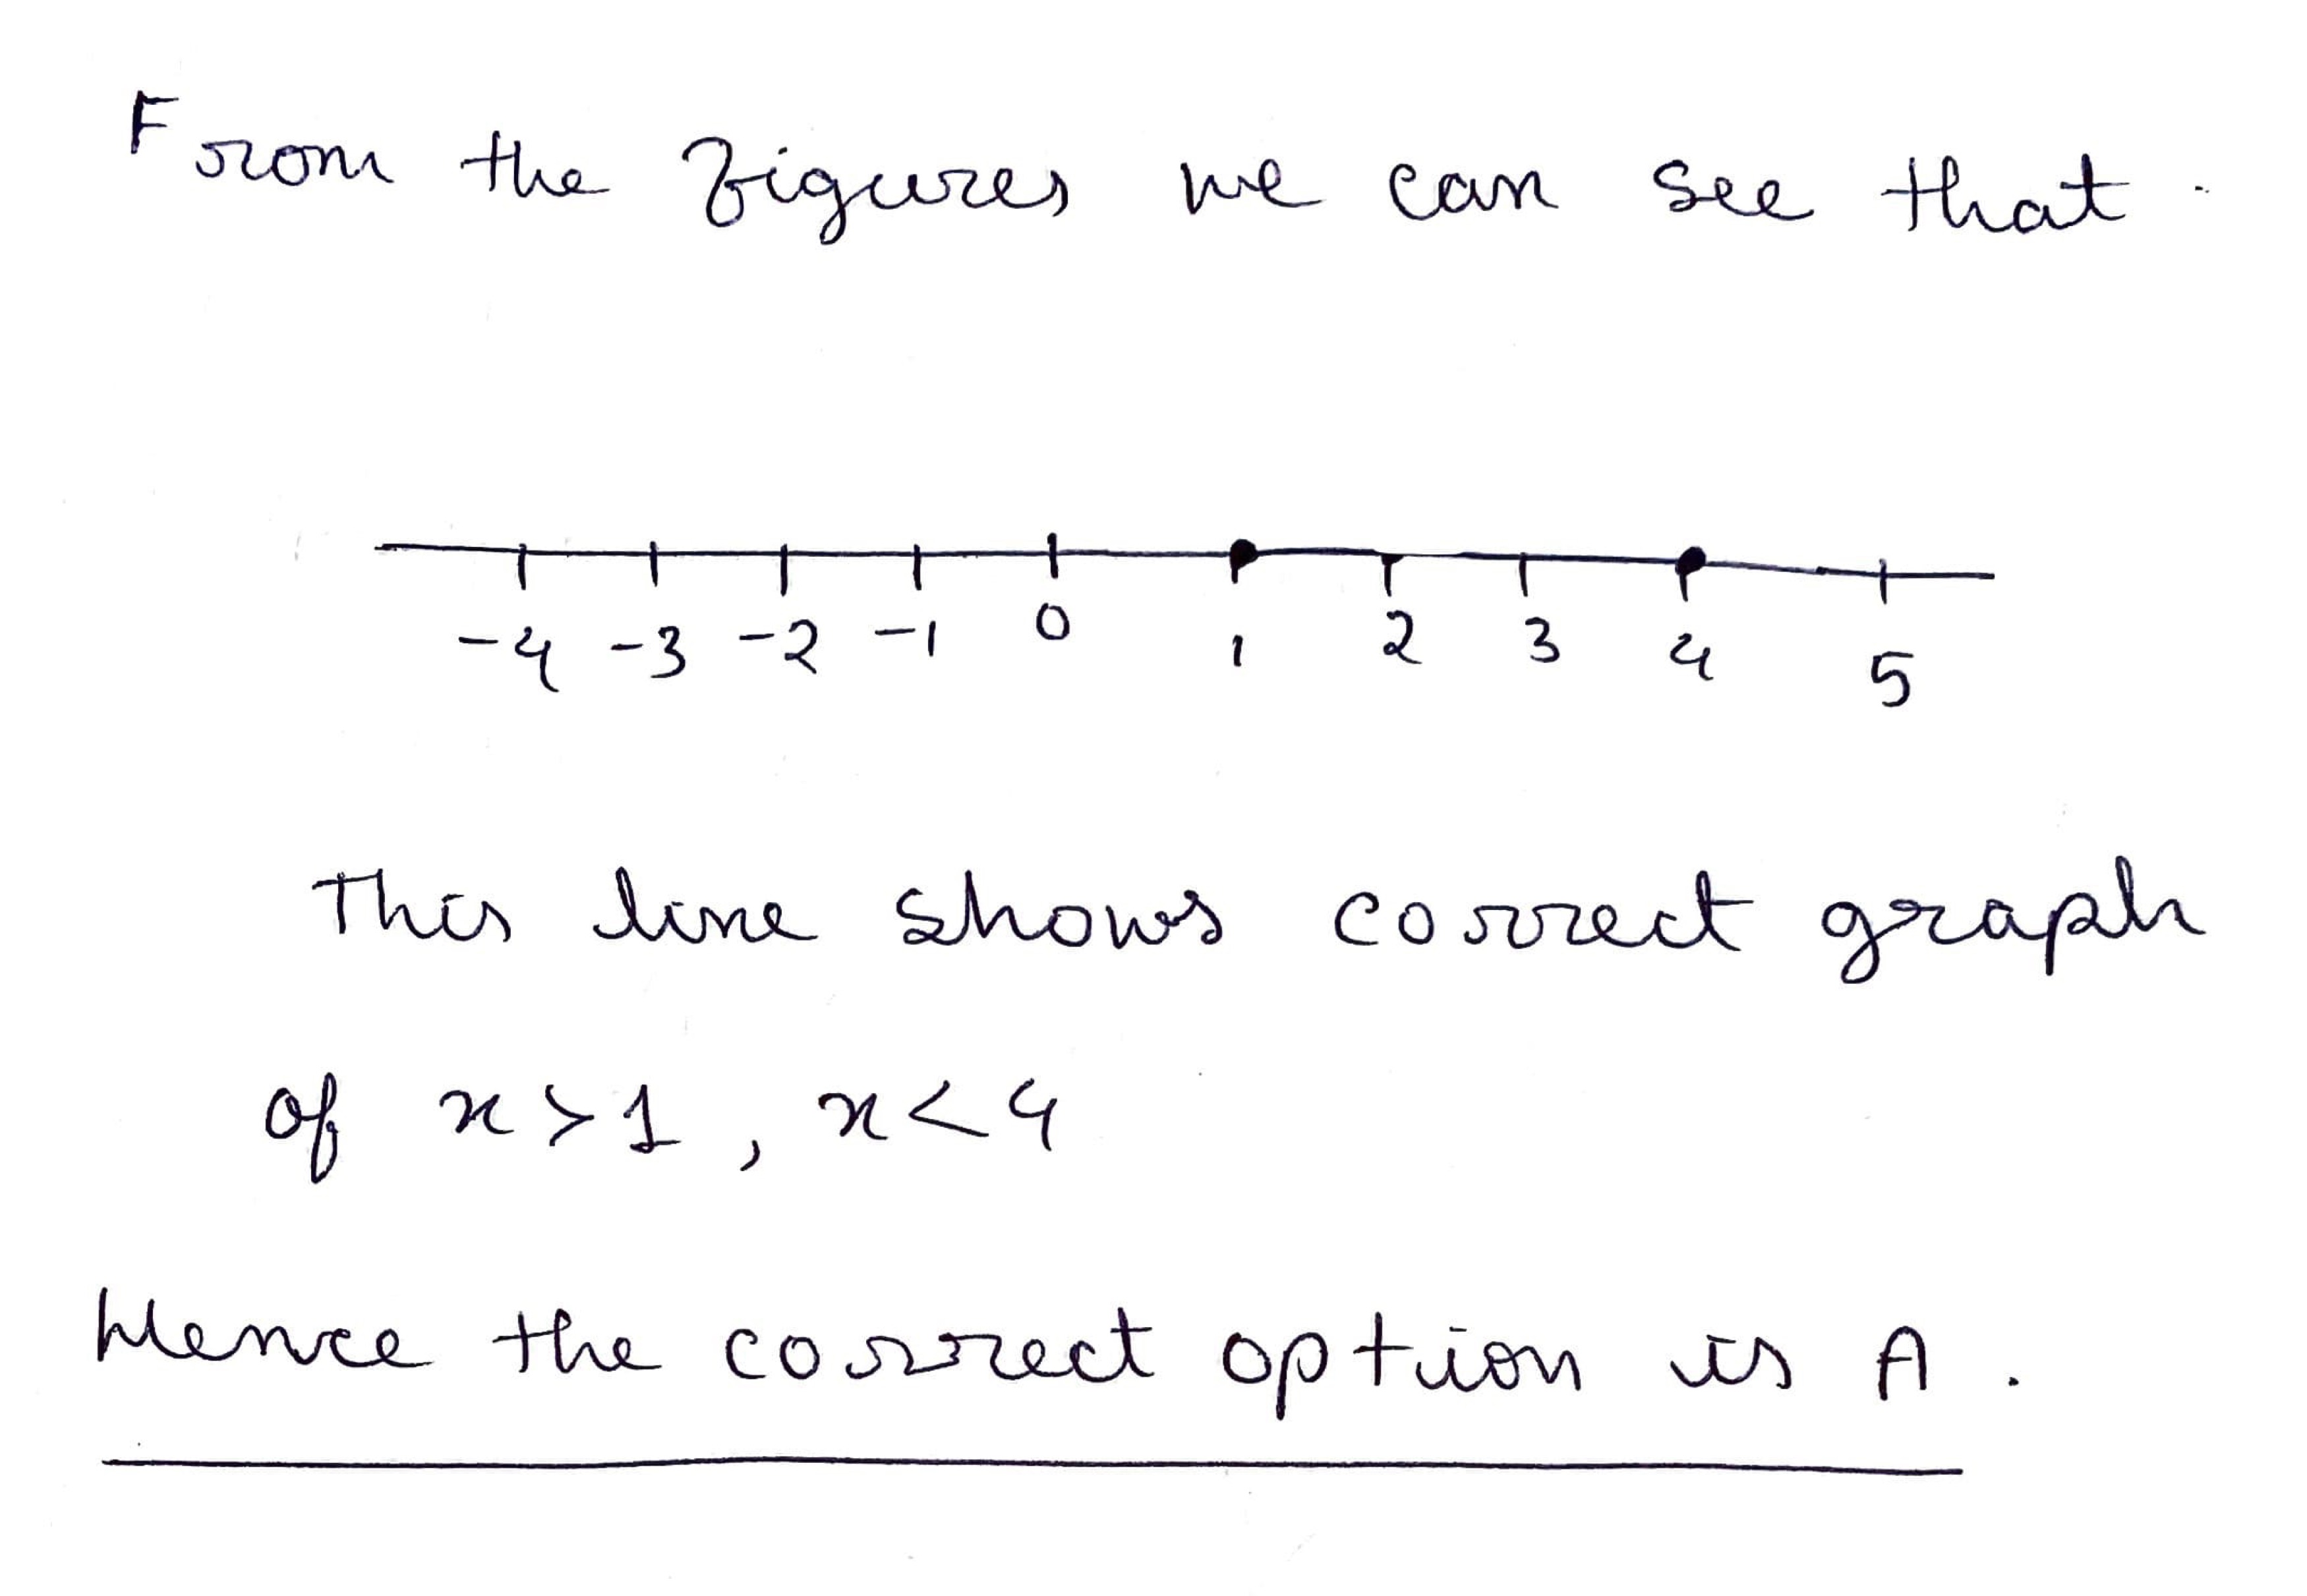 From the figures we can see that
-4 -3 -2 -1 0 1 2 3 4 5
This line shows correct graph
of x>1, x<4
Hence the correct option is A.